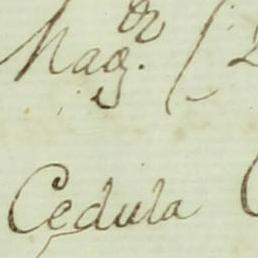 Mag.or ( 2
Cedula (